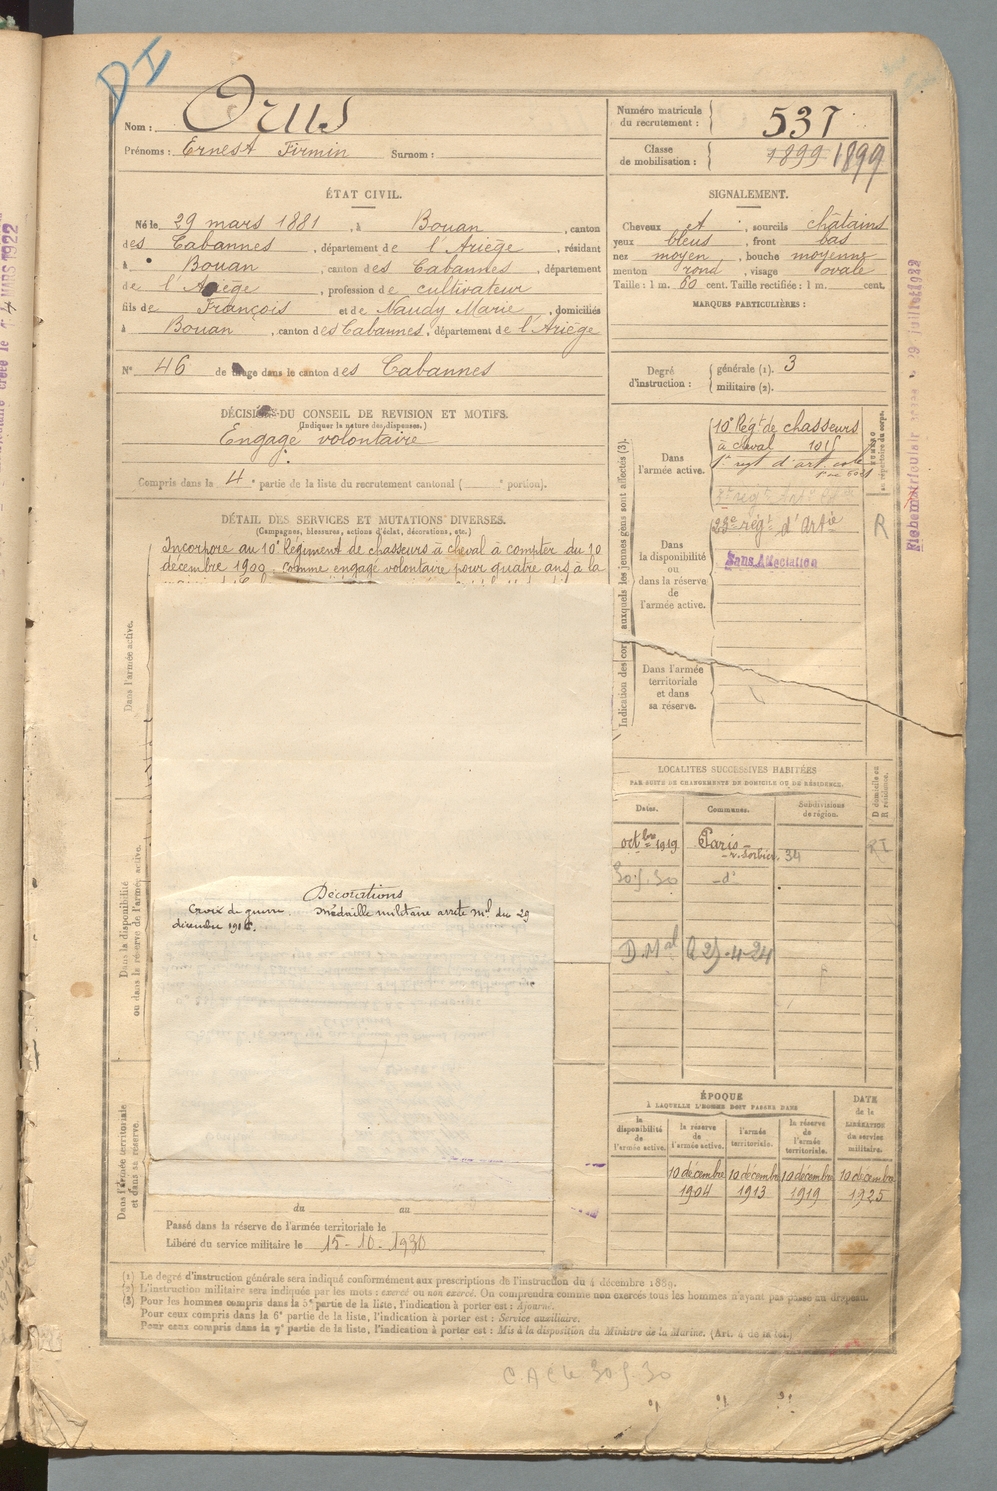 DI
Nom : Orus
Prénoms : Ernest Firmin Surnom :
Numéro matricule du recrutement : 537
Classe de mobilisation : 1899 1899
ÉTAT CIVIL.
Né le 29 mars 1881, à Bouan, canton
des Cabannes, département de l'Ariège, résidant
à Bouan, canton des Cabannes, département
de l'Ariège, profession de cultivateur
fils de François et de Naudy Marie, domiciliés
à Bouan, canton des Cabannes, département de l'Ariège
N° 46 de tirage dans le canton des Cabannes
DÉCISION DU CONSEIL DE REVISION ET MOTIFS.
(Indiquer la nature des dispenses.)
Engagé volontaire
Compris dans la 4e partie de la liste du recrutement cantonal ( portion).
DÉTAIL DES SERVICES ET MUTATIONS DIVERSES.
(Campagnes, blessures, actions d'éclat, décorations, etc.)
Incorporé au 10e Régiment de chasseurs à cheval à compter du 10
décembre 1900, comme engagé volontaire pour quatre ans à la
Dans l'armée active.
Dans la disponibilité
ou dans la réserve de l'armée active.
Dans l'armée territoriale
et dans sa réserve.
Décorations
Croix de guerre Médaille militaire arrêté mel du 29
décembre 1916.
du au
Passé dans la réserve de l'armée territoriale le
Libéré du service militaire le 15-10-1930
SIGNALEMENT.
Cheveux et, sourcils châtains
yeux bleus, front bas
nez moyen, bouche moyenne
menton rond, visage ovale
Taille : 1 m. 60 cent. Taille rectifiée : 1 m. cent.
MARQUES PARTICULIÈRES :
Degré d'instruction :
générale (1). 3
militaire (2).
Indication des corps auxquels les jeunes gens sont affectés (3).
NUMÉRO
au répertoire du corps.
Dans
l'armée active.
10e Régt de chasseurs
à cheval 1015
1er rgt d'art colle
28e régt d'Artie
R
Sans Affectation
Dans
la disponibilité
ou
dans la réserve
de
l'armée active.
Dans l'armée
territoriale
et dans
sa réserve.
LOCALITÉS SUCCESSIVES HABITÉES
PAR SUITE DE CHANGEMENTS DE DOMICILE OU DE RÉSIDENCE.
D domicile ou
R résidence.
Dates. Communes. Subdivisions de région.
octbre 1919 Paris
r. Sorbier, 34
30.5.30 -d°-
D.Mal (25-4-24
ÉPOQUE
À LAQUELLE L'HOMME DOIT PASSER DANS
DATE de la LIBÉRATION du service militaire.
la disponibilité de l'armée active.
la réserve de l'armée active.
l'armée territoriale.
la réserve de l'armée territoriale.
10 décembre 1904
10 décembre 1913
10 décembre 1919
10 décembre 1925
(1) Le degré d'instruction générale sera indiqué conformément aux prescriptions de l'instruction du 4 décembre 1889.
(2) L'instruction militaire sera indiquée par les mots : exercé ou non exercé. On comprendra comme non exercés tous les hommes n'ayant pas passé au drapeau.
(3) Pour les hommes compris dans la 5e partie de la liste, l'indication à porter est : Ajourné.
Pour ceux compris dans la 6e partie de la liste, l'indication à porter est : Service auxiliaire.
Pour ceux compris dans la 7e partie de la liste, l'indication à porter est : Mis à la disposition du Ministre de la Marine. (Art. 4 de la loi.)